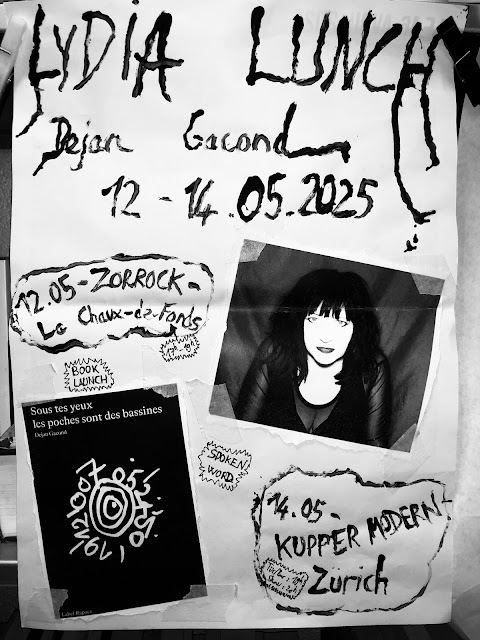 LYDIA LUNCH
Dejan Gacond
12 - 14.05.2025
12.05 - ZORROCK -
La Chaux-de-Fonds
17h-19h
BOOK
LAUNCH
Sous tes yeux
les poches sont des bassines
Dejan Gacond
SPOKEN
WORD
14.05 -
KUPPER MODERN
Zürich